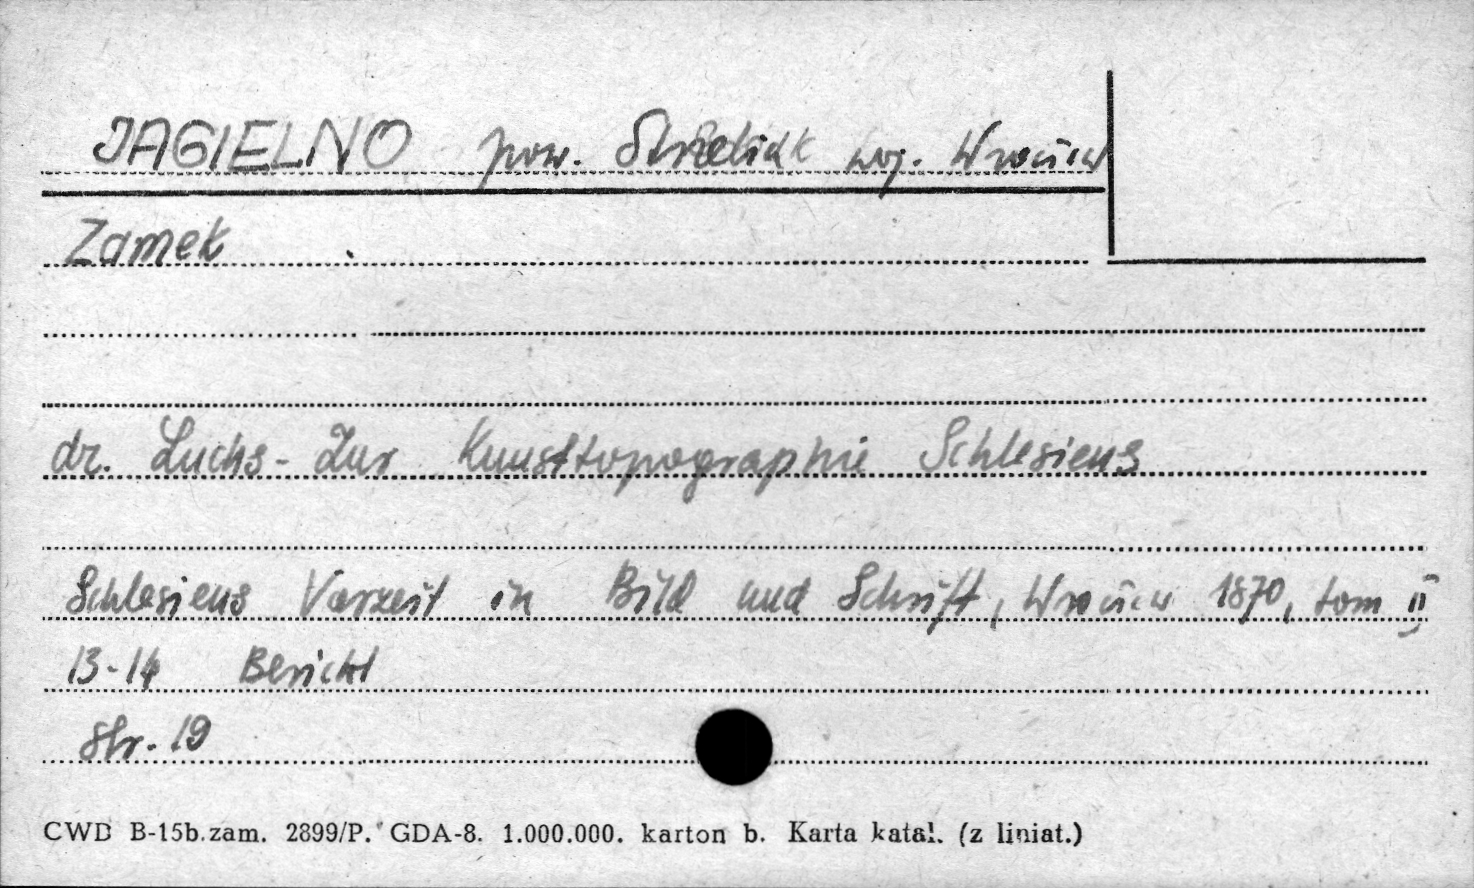 JAGIELNO pow. Strzelin woj. Wrocław
Zamek
dr. Luchs - Zur Kunsttopographie Schlesiens
Schlesiens Vorzeit in Bild und Schrift, Wrocław 1870, tom II
13-14 Bericht
str. 19
CWD B-15b.zam. 2899/P. GDA-8. 1.000.000. karton b. Karta katal. (z liniat.)